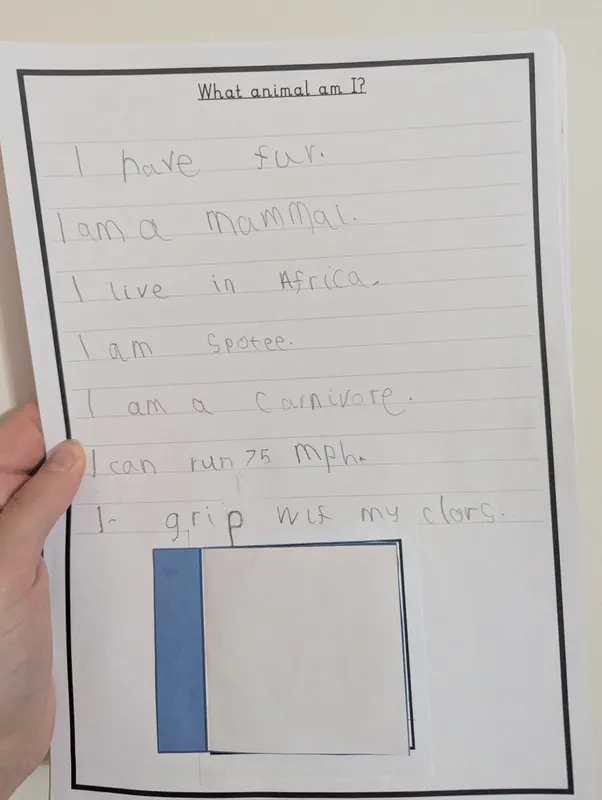 What animal am I?
I have fur.
I am a mammal.
I live in Africa.
I am spotee.
I am a carnivore.
I can run 75 mph.
I grip wif my clors.